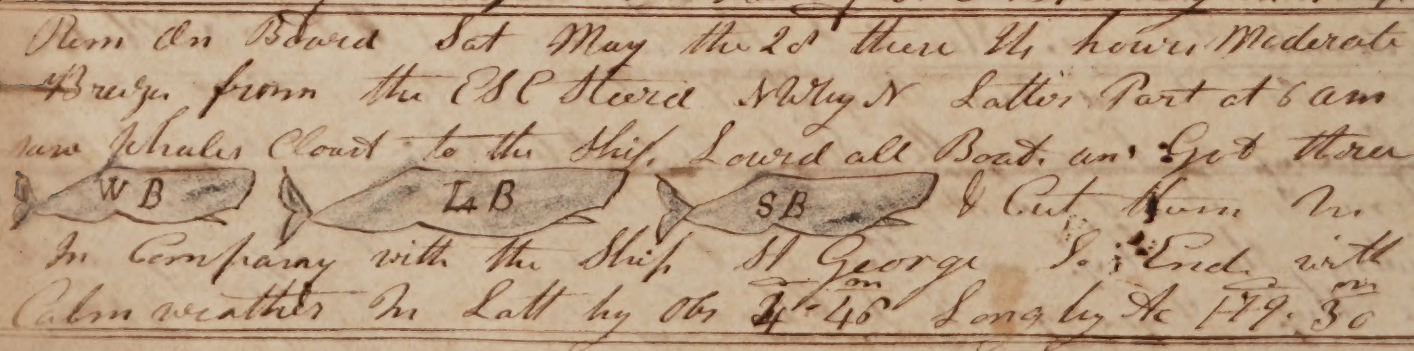 Rem On Board Sat May the 28 these 24 hours Moderate
Breezes from the ESE Steerd NW by N Latter Part at 6 am
saw Whales Cloast to the Ship. Lowrd all Boats an Got three
WB L4B SB & Cut them In
In Company with the Ship St George So Ends with
Calm weather In Latt by Obs 4° 46m Long by Ac 179° 30m